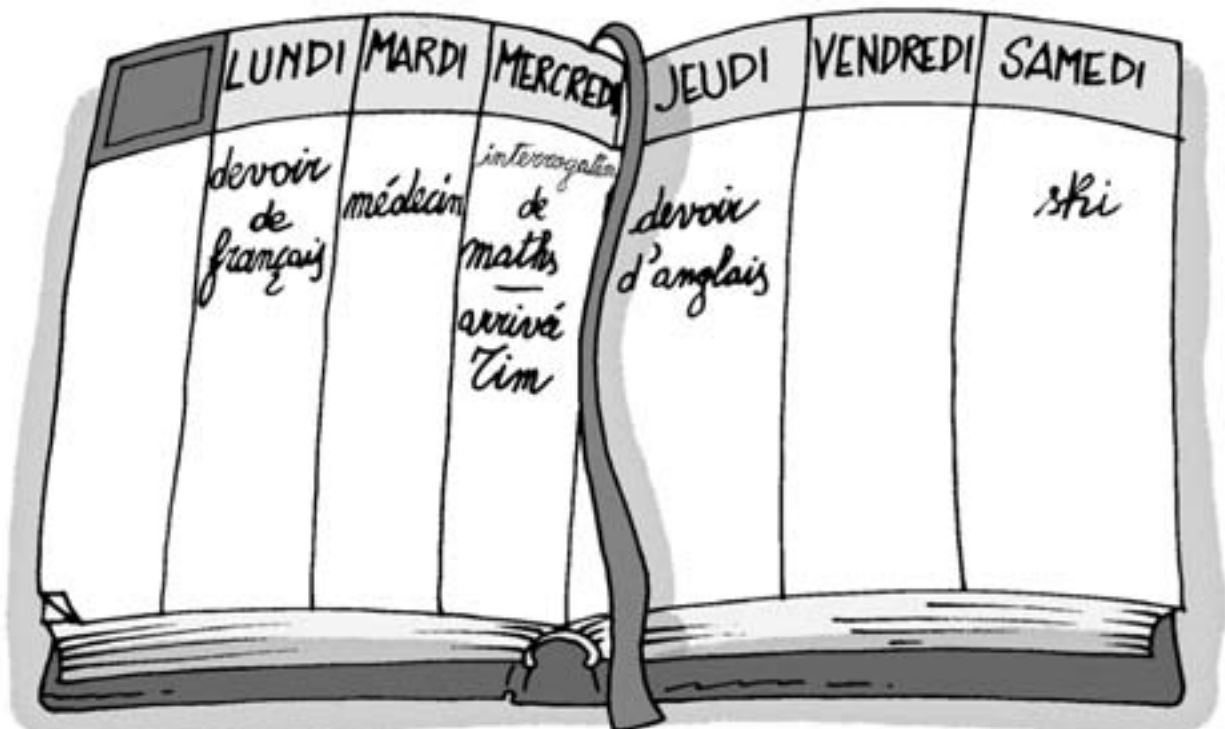 LUNDI
MARDI
MERCREDI
JEUDI
VENDREDI
SAMEDI
devoir
de
français
médecin
interrogation
de
maths
arrivé
Tim
devoir
d'anglais
ski